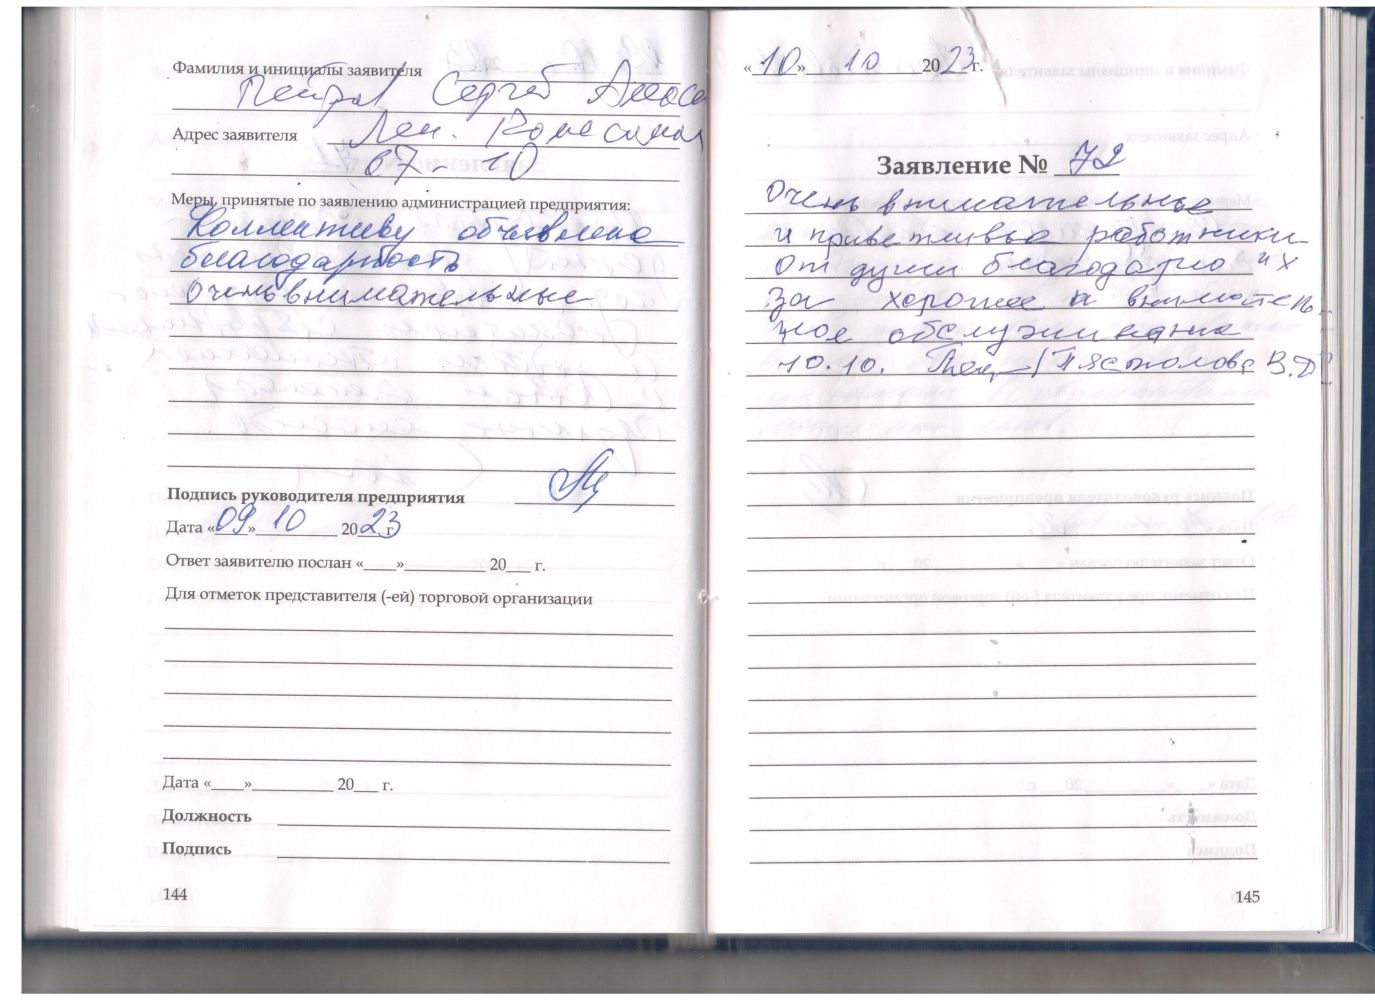 Фамилия и инициалы заявителя
Сергей
Адрес заявителя Лен.
67 - 10
Меры, принятые по заявлению администрацией предприятия:
Коллективу объявлена
благодарность
Очень внимательные
Подпись руководителя предприятия
Дата «09» 10 2023 г.
Ответ заявителю послан «____»__________ 20___ г.
Для отметок представителя (-ей) торговой организации
Дата «____»__________ 20___ г.
Должность
Подпись
144
«10» 10 2023 г.
Заявление № 72
Очень внимательные
и приветливые работники
От души благодарю их
за хорошее и вниматель-
ное обслуживание
10.10. В.Д
145